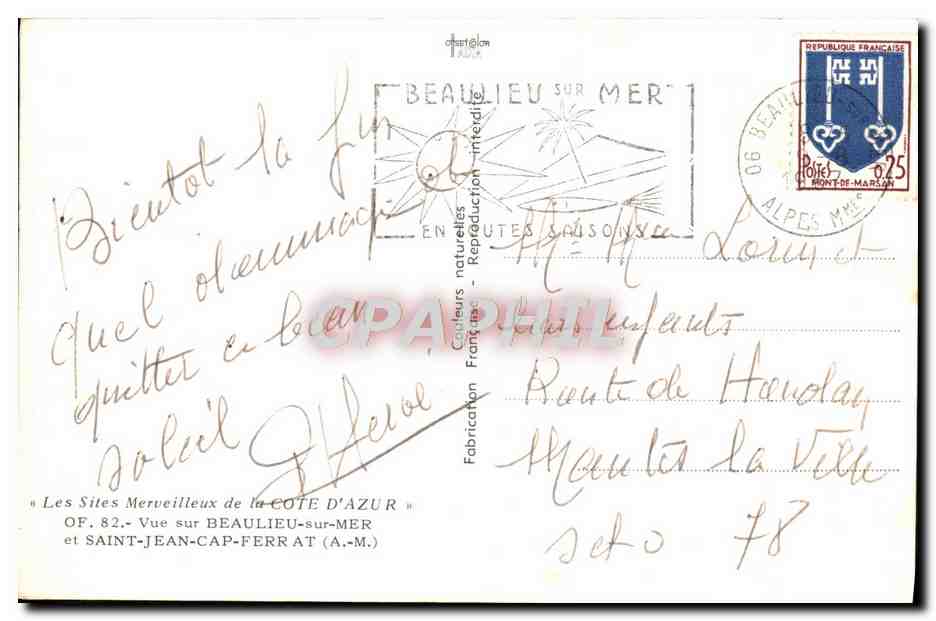 BEAULIEU SUR MER
EN TOUTES SAISONS
REPUBLIQUE FRANÇAISE
POSTES 0.25
MONT-DE-MARSAN
06 BEAULIEU-SUR-MER
ALPES MMES
Bientot la fin
Quel dommage de
quitter ce beau
soleil
Hervé
Mr Mme
leurs enfants
Route de Houdan
Mantes la Ville
78
Couleurs naturelles
Fabrication Française - Reproduction interdite
CPAPHIL
« Les Sites Merveilleux de la COTE D'AZUR »
OF. 82.- Vue sur BEAULIEU-sur-MER
et SAINT-JEAN-CAP-FERRAT (A.-M.)